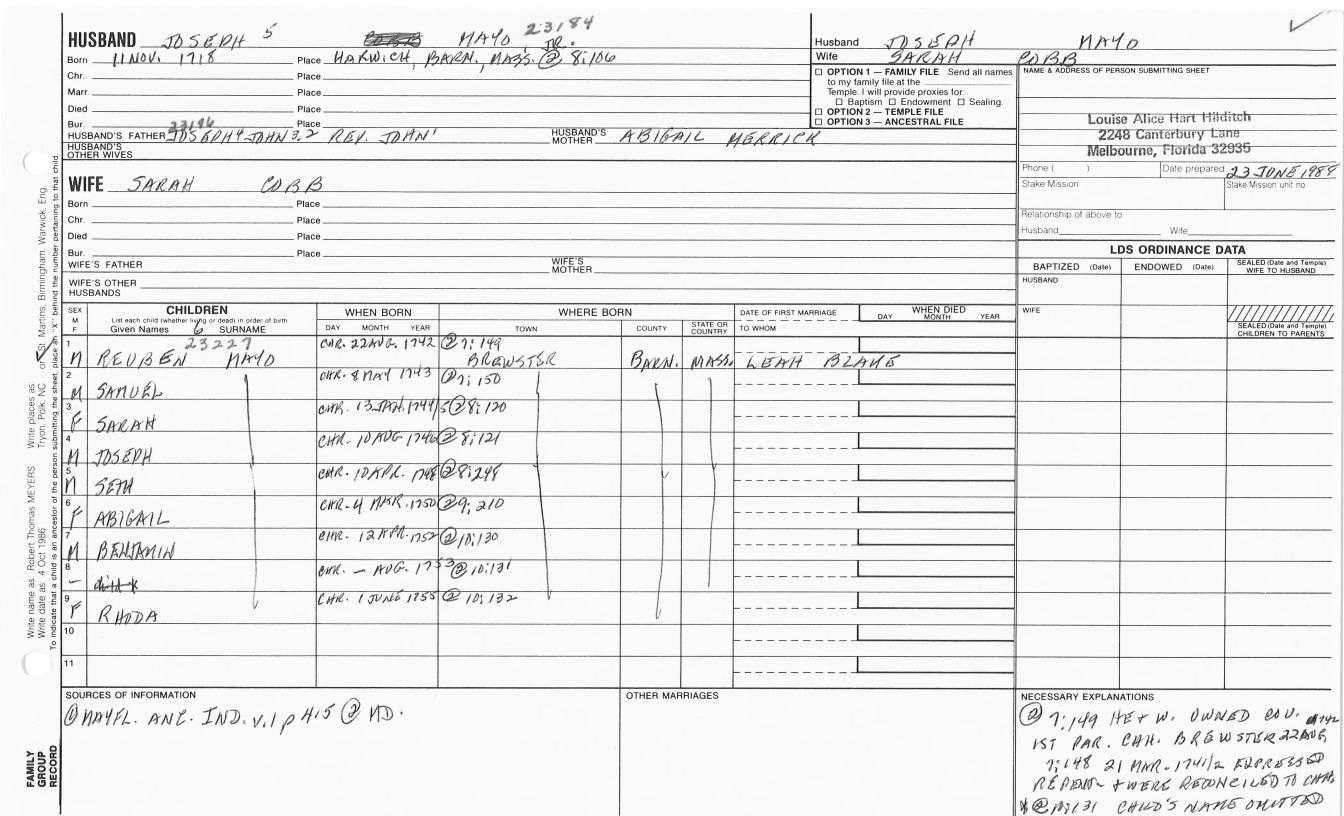 HUSBAND JOSEPH 5 MAYO JR. 23184
Born 11 NOV. 1718 Place HARWICH, BARN., MASS. @ 8:106
Chr. Place
Marr. Place
Died Place
Bur. Place
23196
HUSBAND'S FATHER JOSEPH4 JOHN 3,2 REV. JOHN1 HUSBAND'S MOTHER ABIGAIL MERRICK
HUSBAND'S OTHER WIVES
WIFE SARAH COBB
Born Place
Chr. Place
Died Place
Bur. Place
WIFE'S FATHER WIFE'S MOTHER
WIFE'S OTHER HUSBANDS
Husband JOSEPH MAYO
Wife SARAH COBB
☐ OPTION 1 — FAMILY FILE Send all names
to my family file at the
Temple. I will provide proxies for
☐ Baptism ☐ Endowment ☐ Sealing.
☐ OPTION 2 — TEMPLE FILE
☐ OPTION 3 — ANCESTRAL FILE
NAME & ADDRESS OF PERSON SUBMITTING SHEET
Louise Alice Hart Hilditch
2248 Canterbury Lane
Melbourne, Florida 32935
Phone ( ) Date prepared 23 JUNE 1989
Stake Mission Stake Mission unit no
Relationship of above to
Husband Wife
LDS ORDINANCE DATA
BAPTIZED (Date) ENDOWED (Date) SEALED (Date and Temple) WIFE TO HUSBAND
HUSBAND
WIFE
SEALED (Date and Temple) CHILDREN TO PARENTS
SEX M F
CHILDREN
List each child (whether living or dead) in order of birth
Given Names 6 SURNAME
WHEN BORN
DAY MONTH YEAR
WHERE BORN
TOWN COUNTY STATE OR COUNTRY
DATE OF FIRST MARRIAGE
TO WHOM
WHEN DIED
DAY MONTH YEAR
23227
1 M REUBEN MAYO CHR. 22 AUG. 1742 @ 7:149 BREWSTER BARN. MASS. LEAH BLAKE
2 M SAMUEL CHR. 8 MAY 1743 @ 7:150
3 F SARAH CHR. 13 JAN. 1744/5 @ 8:120
4 M JOSEPH CHR. 10 AUG 1746 @ 8:121
5 M SETH CHR. 10 APR. 1748 @ 8:248
6 F ABIGAIL CHR. 4 MAR. 1750 @ 9:210
7 M BENJAMIN CHR. 12 APR. 1752 @ 10:130
8 – child * CHR. — AUG. 1753 @ 10:131
9 F RHODA CHR. 1 JUNE 1755 @ 10:132
10
11
SOURCES OF INFORMATION
① MAYFL. ANC. IND. v.1 p 415 ② MD.
OTHER MARRIAGES
NECESSARY EXPLANATIONS
② 7:149 HE + W. OWNED COV.
1ST PAR. CHH. BREWSTER 22 AUG, 1742
7:148 21 MAR. 1741/2 EXPRESSED
REPENT. + WERE RECONCILED TO CHH.
* ② 10:131 CHILD'S NAME OMITTED
Write name as Robert Thomas MEYERS
Write date as 4 Oct 1986
Write places as Tryon, Polk, NC or St. Martins, Birmingham, Warwick, Eng.
To indicate that a child is an ancestor of the person submitting the sheet, place an "X" behind the number pertaining to that child
FAMILY
GROUP
RECORD